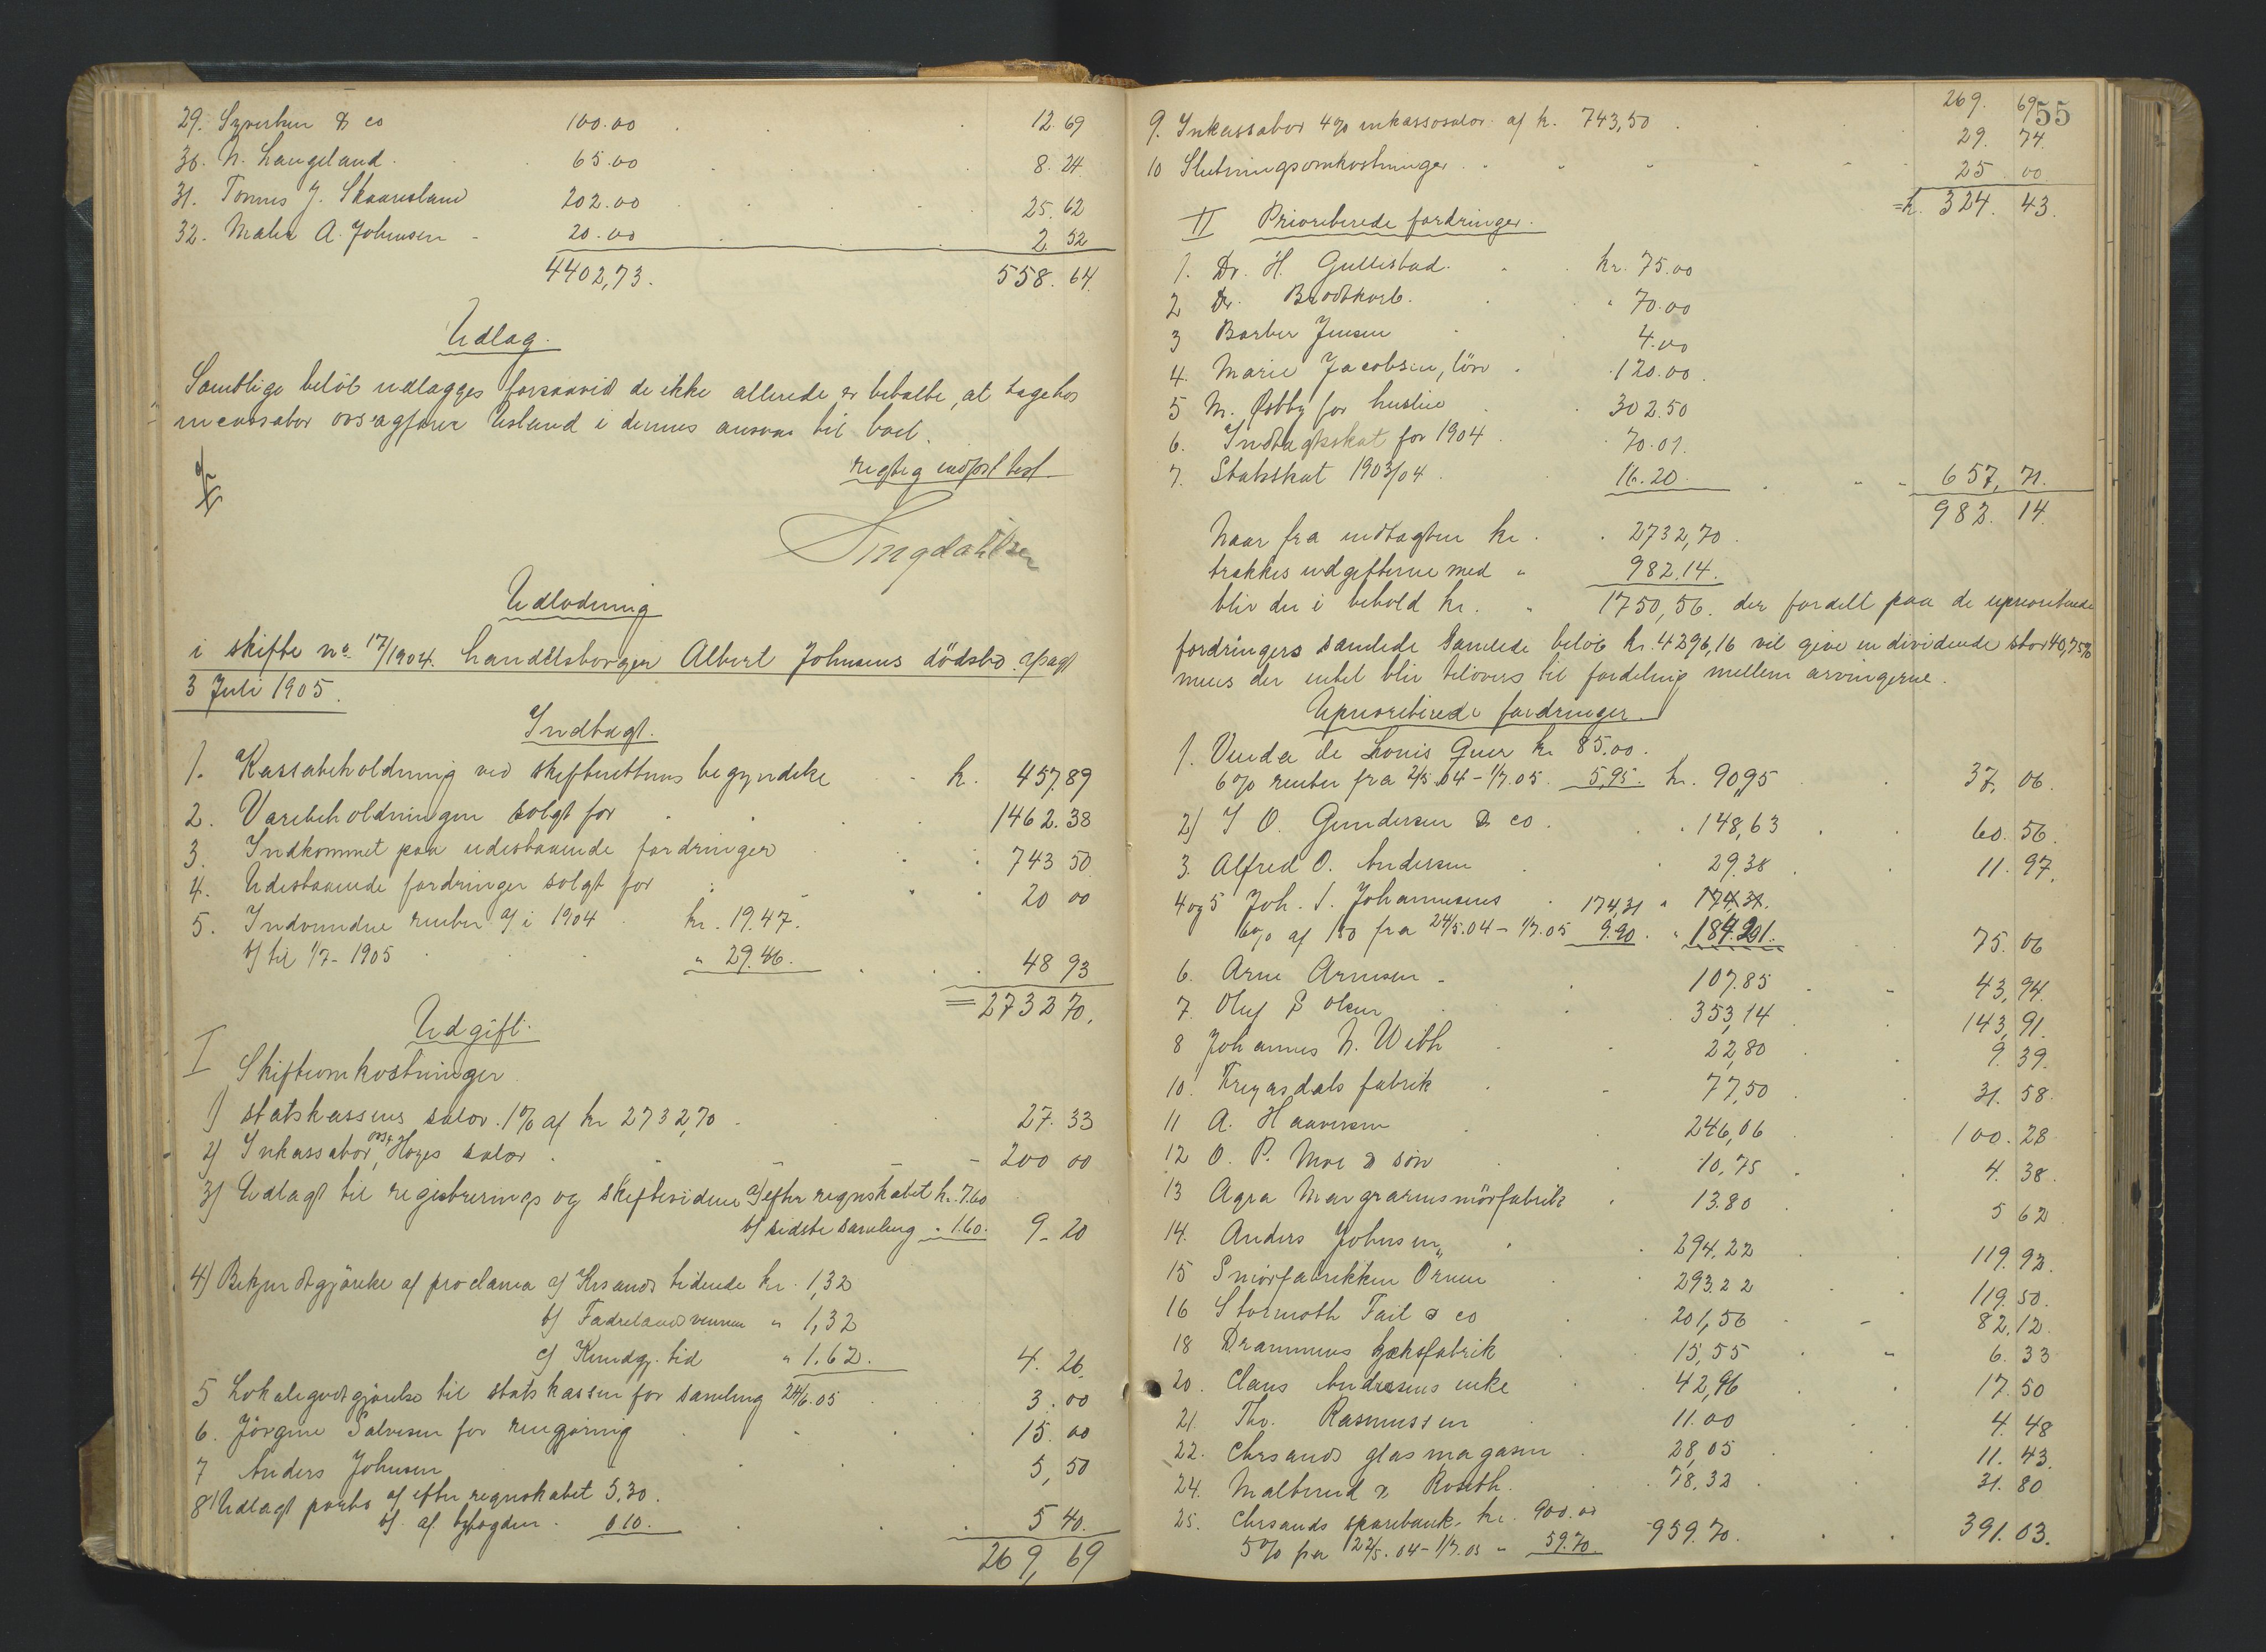 29. Syvertsen & co 100.00 12.69
30. N. Langeland. 65.00 8.24
31. Tønnes J. Skaaresland 202.00 25.62
32. Maler A. Johnsen - 20.00 2.52
4402,73. 558.64.
Udlag.
Samtlige beløb udlægges forsaavid de ikke allerede er betalte, at tage hos
incassator ovsagfører Usland i dennes ansvar til boet.
rigtig indført test
Udlodning
i skifte no 17/1904. handelsborger Albert Johnsens dödsbo. afsagt
3 Juli 1905.
Indtægt.
1. Kassabeholdning ved skifterettens begyndelse kr. 457,89
2. Varebeholdningen solgt for 1462.38
3. Indkommet paa udestaaende fordringer 743 50
4. Udestaaende fordringer solgt for 20 00
5. Indvundne renter a/ i 1904 kr. 19.47.
b/ til 1/7-1905 " 29.46. 48 93
= 2732 70.
Udgift.
I Skifteomkostninger
1) statskassens salær. 1% af kr 2732,70 27.33
2) Inkassator, ovsgf Høyes salær 200 00
3) Udlagt til registrerings og skiftevidne a) efter regnskabet kr. 7.60
b) sidste samling " 1.60. 9-20
4) Bekjendtgjörelse af proclama a) Krsands tidende kr. 1,32
b) Fædrelandsvennen " 1,32
c) Kundgj. tid " 1.62. 4.26.
5 Lokalegodtgjörelse til statskassen for samling 24/6.05 3.00
6. Jörgine Salvesen for rengjøring 15.00
7 Anders Johnsen 5,50
8 Udlagt porto a) efter regnskabet 5,30.
b). af byfogden. 0 10. 5 40.
269,69
55
269.69
9. Inkassator 4% inkassosalær af kr. 743,50 29.74
10 Slutningsomkostninger 25.00
= kr. 324.43.
II Prioriterede fordringer.
1. Dr. H. Gullestad. kr. 75.00
2 Dr. Brodtkorb. " 70.00
3 Barber Jensen 4.00
4. Marie Jacobsen, lön 120.00.
5 M. Østby for husleie 302.50
6. Indtægtsskat for 1904 70.01.
7. Statsskat 1903/04 16.20. 657,71.
982.14.
Naar fra indtægten kr. 2732,70.
trækkes udgifterne med " 982.14.
blir der i behold kr. " 1750,56. der fordelt paa de uprioriterede
fordringers samlede samlede beløb kr. 4296,16 vil give en dividende stor 40,75%
mens der intet blir tilovers til fordeling mellem arvingerne.
Uprioriterede fordringer
1. Venda de Louis Guer kr 85.00.
6% renter fra 2/5.04 - 1/7.05. 5,95. kr. 90,95 37,06.
2) J O. Gundersen & co. 148,63 60.56.
3. Alfred O. Andersen 29.38 11.97.
4 og 5 Joh. S. Johannesens 174,31 " 174,31.
6% af 150 fra 24/5.04 - 1/7.05 9.90. " 184.21. 75.06
6. Arne Arnesen - 107.85 43,94.
7. Oluf S Olsen 353,14 143,91.
8 Johannes N. Weith 22,80 9.39.
10. Tregasdals fabrik 77,50 31.58.
11 A. Haaversen 246,06 100.28
12 O. P. Moe & sön 10,75 4.38.
13 Agra Margarinsmörfabrik 13.80 5 62
14. Anders Johnsen 294,22 119.92.
15 Smörfabrikken Ørnen 293.22 119.50.
16 Stormoth Fail & co 201,56 82,12.
18 Drammens kjæksfabrik 15,55 6.33
20. Claus Andersens enke 42,96 17.50
21. Thv. Rasmussen 11.00 4.48
22. Chrsands glasmagasin 28,05 11.43.
24. Malterud & Roseth. 78,32 31.80
25. Chrsands sparebank. kr. 900.00
5% fra 22/5.04 - 1/7.05 " 59.70. 959.70. 391.03.